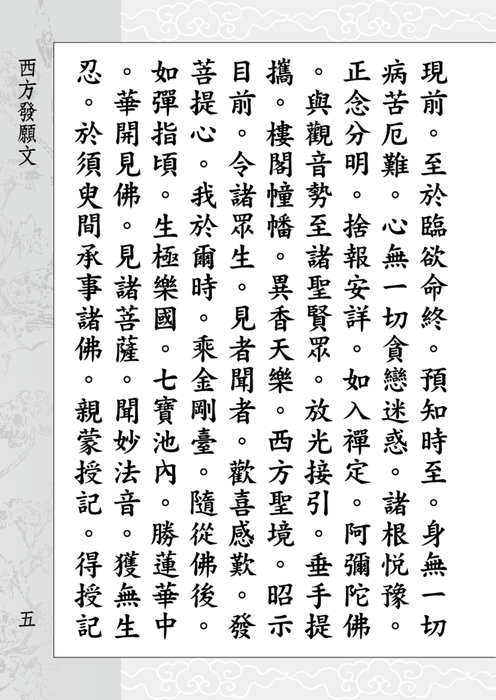 現前。至於臨欲命終。預知時至。身無一切
病苦厄難。心無一切貪戀迷惑。諸根悅豫。
正念分明。捨報安詳。如入禪定。阿彌陀佛
。與觀音勢至諸聖賢眾。放光接引。垂手提
攜。樓閣幢幡。異香天樂。西方聖境。昭示
目前。令諸眾生。見者聞者。歡喜感歎。發
菩提心。我於爾時。乘金剛臺。隨從佛後。
如彈指頃。生極樂國。七寶池內。勝蓮華中
。華開見佛。見諸菩薩。聞妙法音。獲無生
忍。於須臾間承事諸佛。親蒙授記。得授記
西方發願文
五